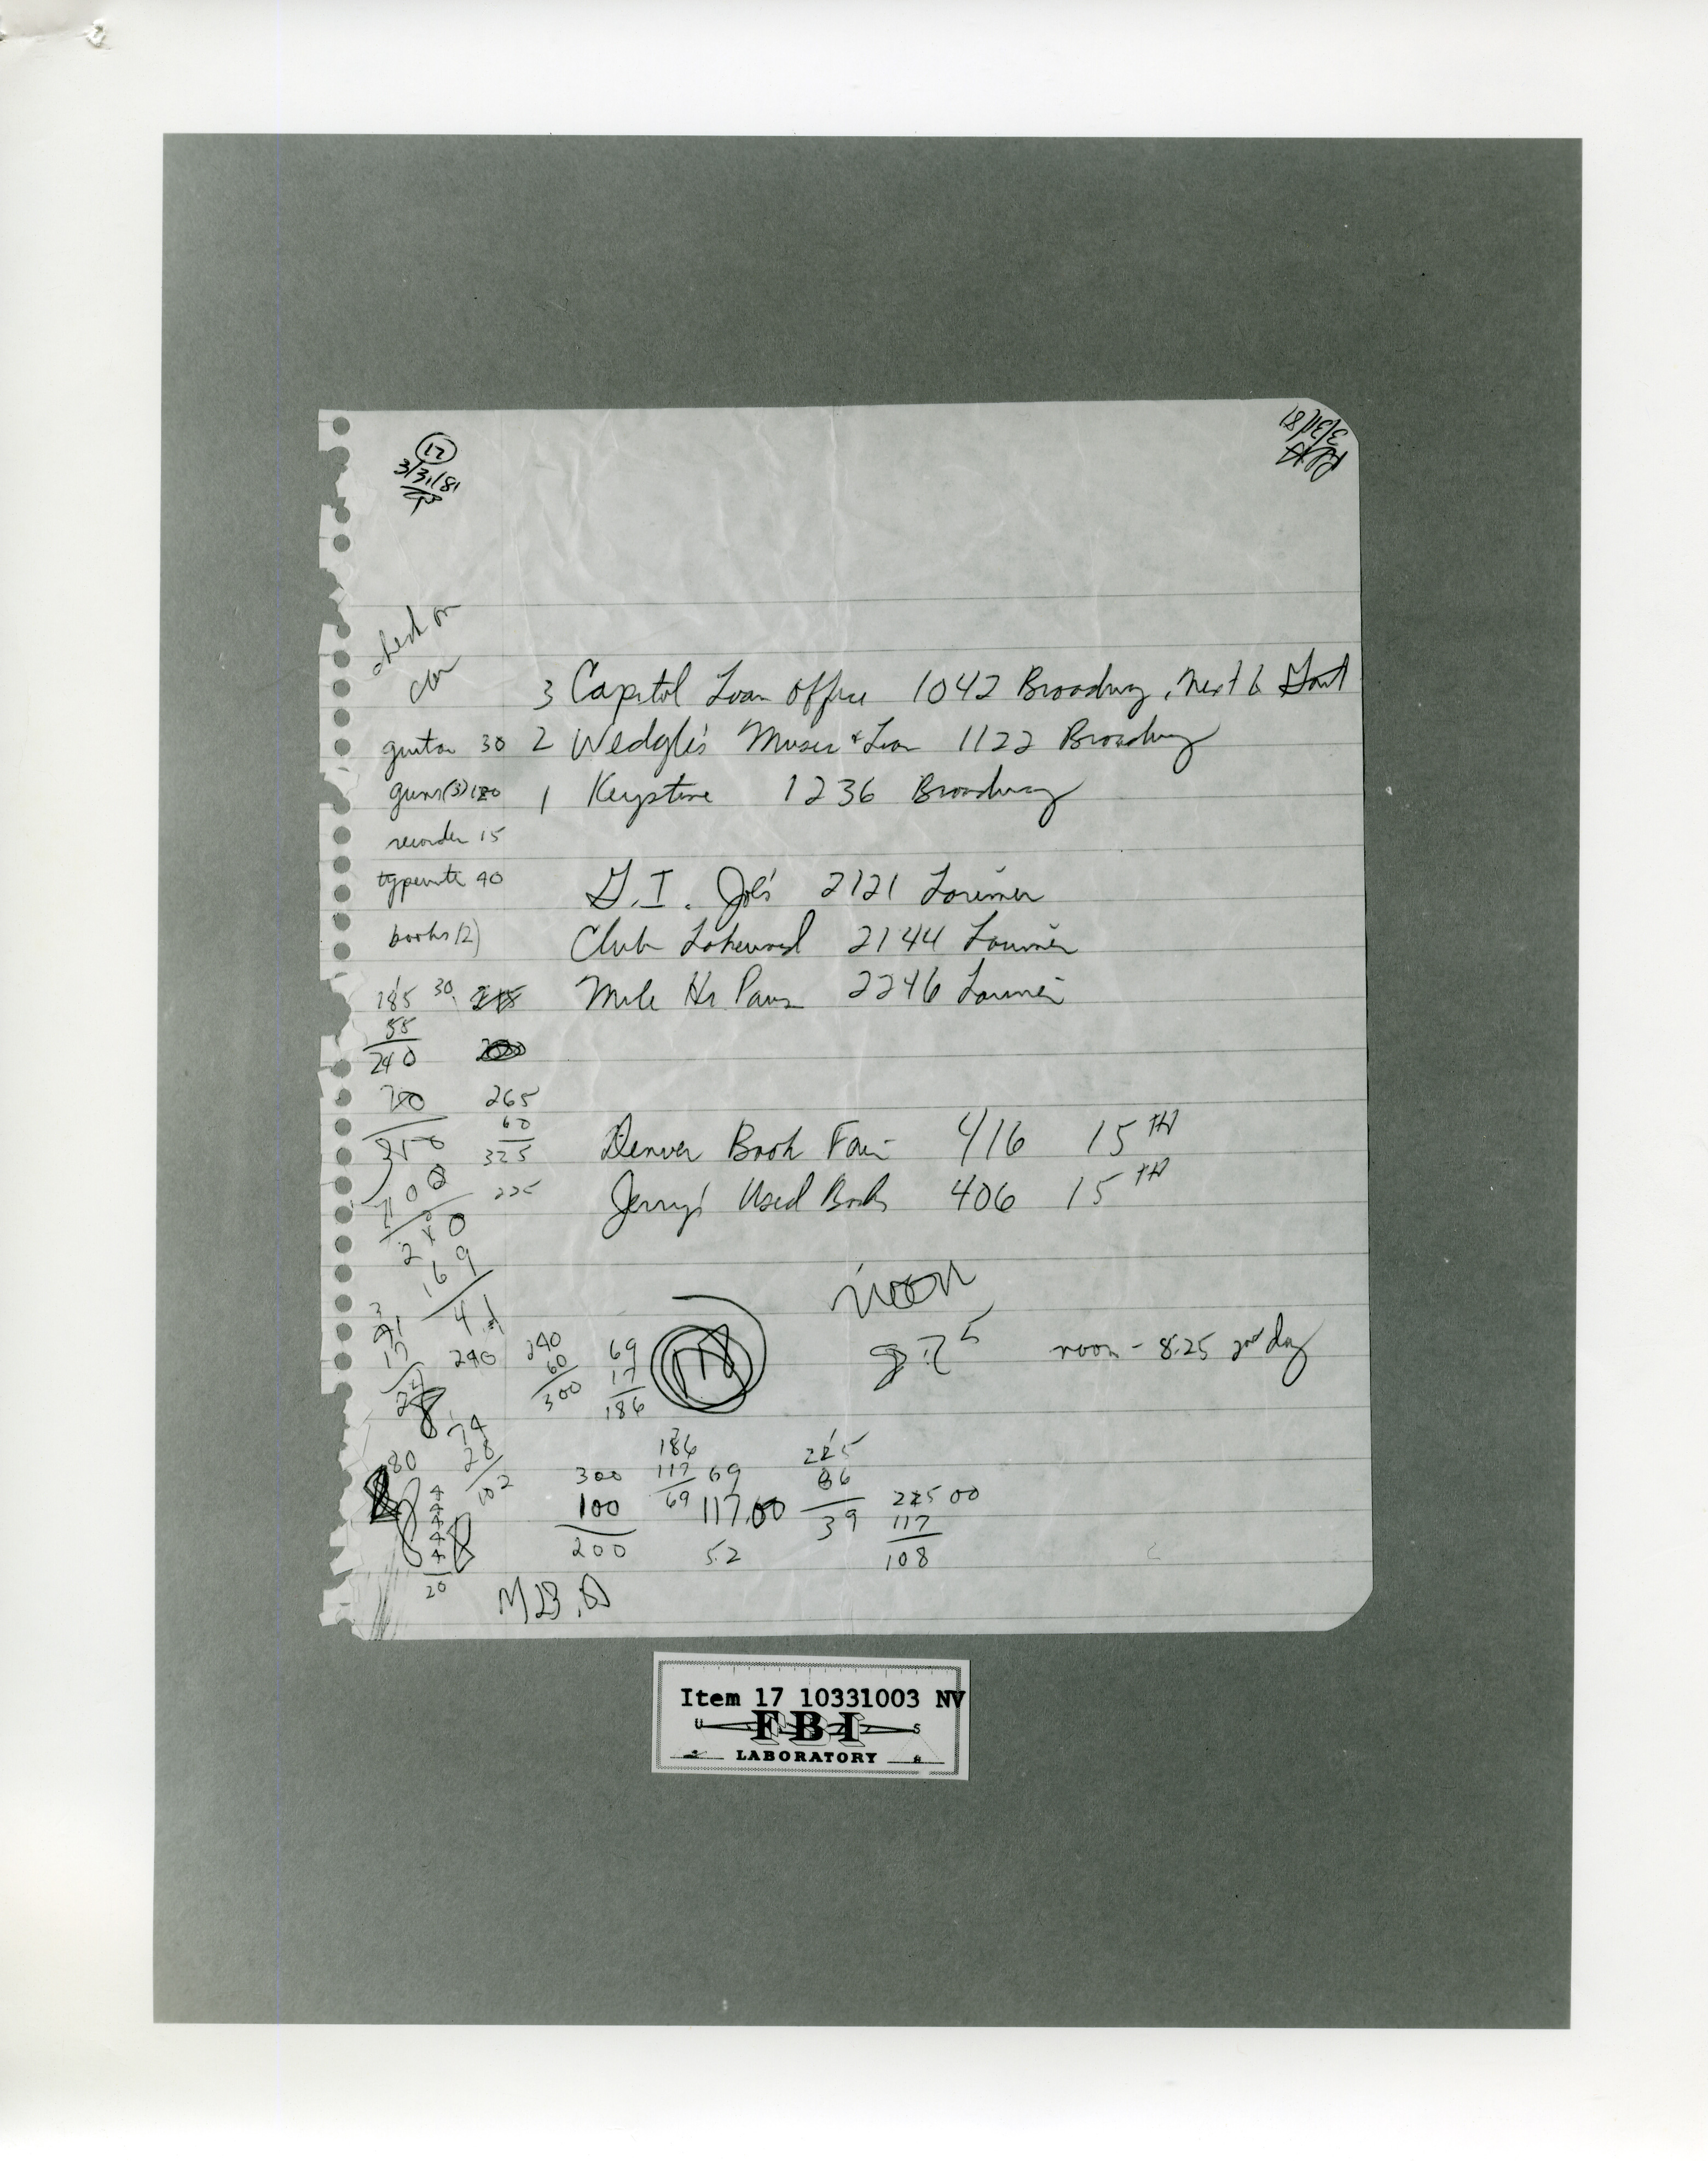 17
3/31/81
3/31/81
check on
car
3 Capitol Loan Office 1042 Broadway, Next to
guitar 30 2 Wedgle's Music & Loan 1122 Broadway
guns(3) 120 1 Keystone 1236 Broadway
recorder 15
typewrite 40
G.I. Joe's 2121 Larimer
books (2)
Club Lakewood 2144 Larimer
185 30
Mile Hi Pawn 2246 Larimer
55
240
265
60
325
Denver Book Fair 416 15TH
225
Jerry's Used Books 406 15TH
200
169
41
noon
17
240
240
60
300
69
17
186
noon - 8.25 2nd day
74
28
102
80
4
4
4
4
4
20
300
100
200
186
117
69
69
117.00
52
225
86
39
225 00
117
108
Item 17 10331003 NV
U S
FBI
LABORATORY